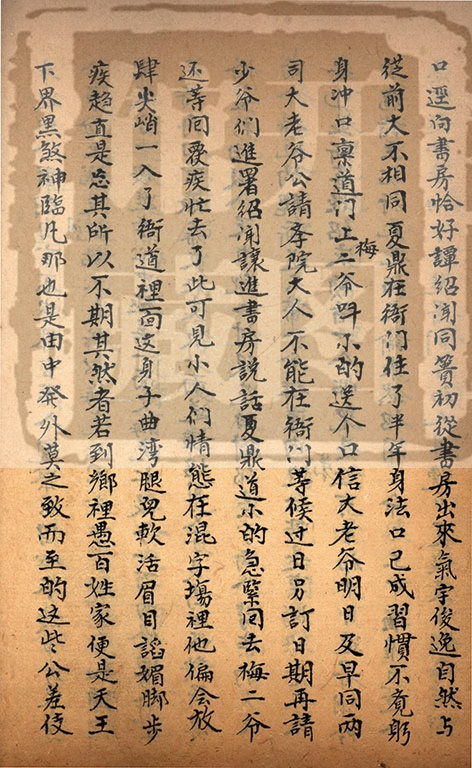 口逕向書房恰好譚紹聞同簣初從書房出來氣宇俊逸自然与
從前大不相同夏鼎在衙門住了半年身法口已成習慣不覚躬
身冲口禀道门上梅二爷呌小的送个口信大老爷明日及早同两
司大老爷公請孝院大人不能在衙门等候过日另訂日期再請
少爷们進署紹闻讓進書房說話夏鼎道小的急緊回去梅二爷
还等囘覆疾忙去了此可見小人们情態在混字塲裡他偏会放
肆尖峭一入了衙道裡面这身子曲湾腿兒軟活眉目謟媚脚步
疾趋直是忘其所以不期其然者若到鄉裡愚百姓家便是天王
下界黑煞神臨凡那也是由中発外莫之致而至的这些公差伎